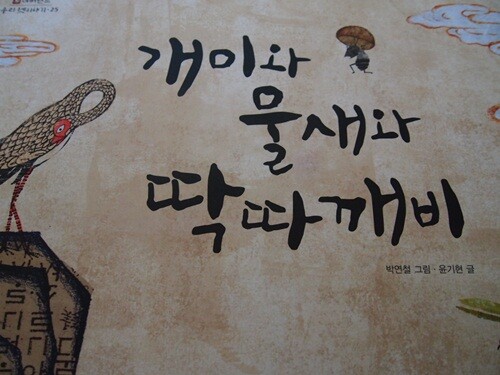 개미와
물새와
딱따깨비
박연철 그림 · 윤기현 글